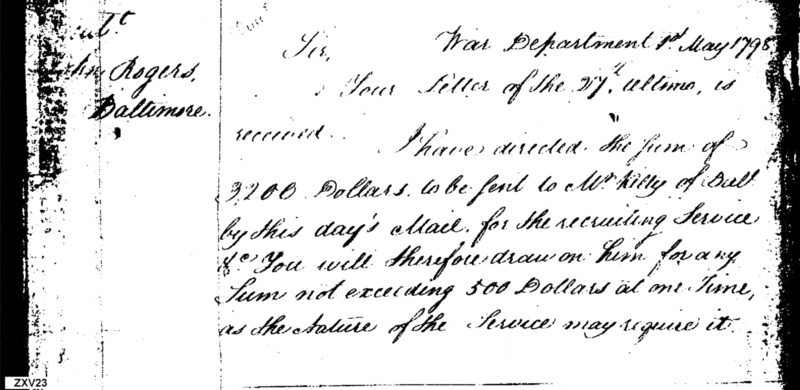 Lieut
John Rogers,
Baltimore.
War Department 1st May 1798
Sir,
Your Letter of the 27th Ultimo, is
received. I have directed the Sum of
3,200 Dollars to be sent to Mr. Kilty of Balt
by this day's Mail, for the recruiting Service
&c. You will therefore draw on him for any
Sum not exceeding 500 Dollars at one Time,
as the Nature of the Service may require it.
ZXV23